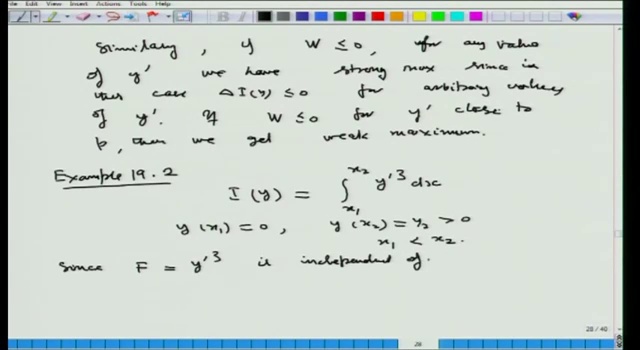 File View Insert Actions Tools Help
Similarly, if W ≤ 0, for any value
of y' we have strong max since in
this case ΔI(y) ≤ 0 for arbitrary values
of y'. If W ≤ 0 for y' close to
p, then we get weak maximum.
Example 19.2
I(y) = ∫_{x₁}^{x₂} y'³ dx
y(x₁) = 0, y(x₂) = y₂ > 0
x₁ < x₂.
Since F = y'³ is independent of.
28 / 40
28